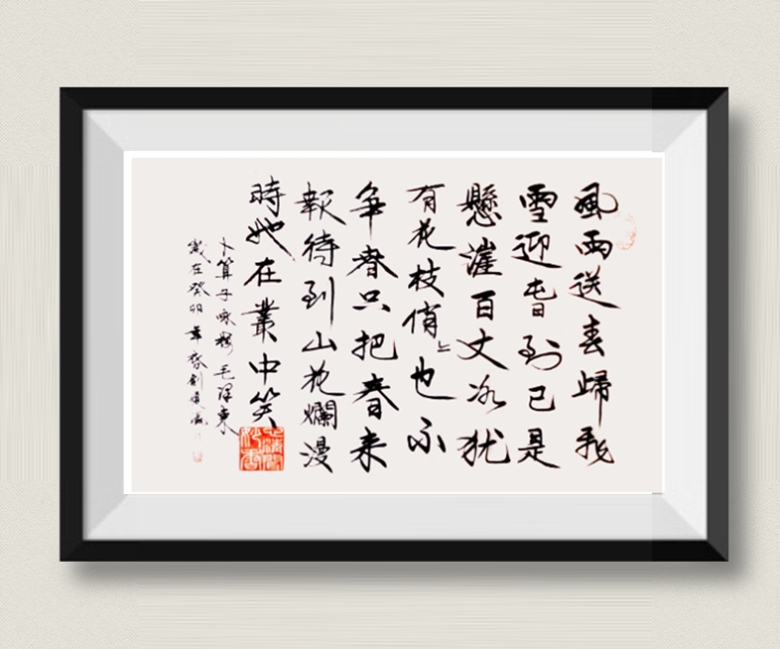 風雨送春歸飛
雪迎春到已是
懸漄百丈冰犹
有花枝俏〻也不
争春只把春来
報待到山花爛漫
時她在叢中笑
卜算子咏梅毛泽東
歲在癸卯年春劉